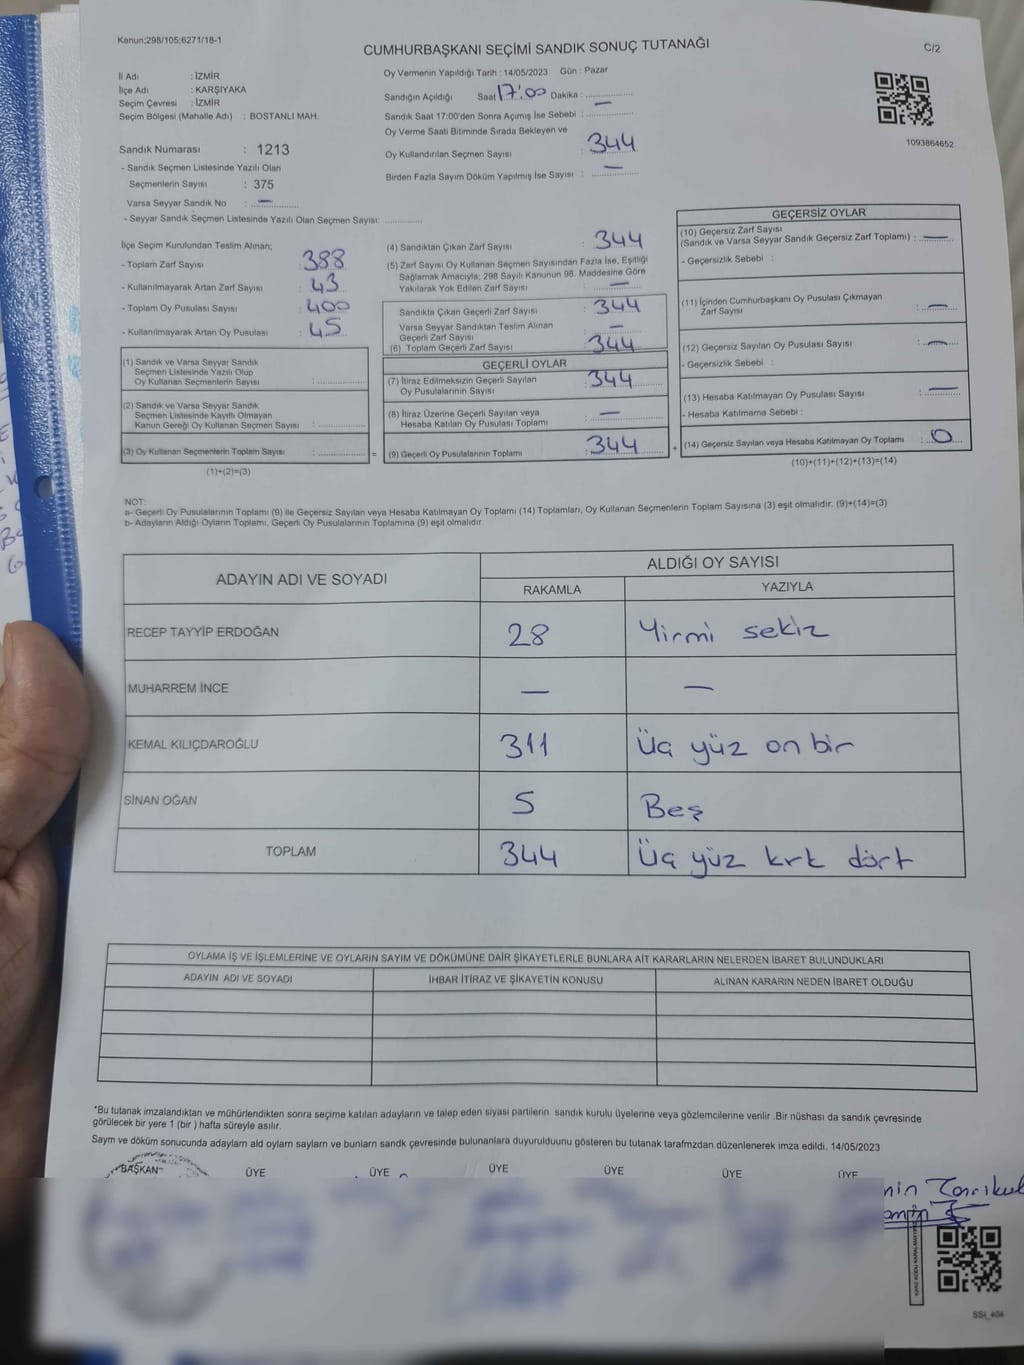 Kanun;298/105;6271/18-1
CUMHURBAŞKANI SEÇİMİ SANDIK SONUÇ TUTANAĞI
C/2
İl Adı : İZMİR
İlçe Adı : KARŞIYAKA
Seçim Çevresi : İZMİR
Seçim Bölgesi (Mahalle Adı) : BOSTANLI MAH.
Sandık Numarası : 1213
- Sandık Seçmen Listesinde Yazılı Olan
Seçmenlerin Sayısı : 375
Varsa Seyyar Sandık No : —
- Seyyar Sandık Seçmen Listesinde Yazılı Olan Seçmen Sayısı: ..............
Oy Vermenin Yapıldığı Tarih : 14/05/2023 Gün : Pazar
Sandığın Açıldığı Saat 17:00 Dakika : ..............
Sandık Saat 17:00'den Sonra Açımış İse Sebebi : —
Oy Verme Saati Bitiminde Sırada Bekleyen ve
Oy Kullandırılan Seçmen Sayısı : 344
Birden Fazla Sayım Döküm Yapılmış İse Sayısı : —
1093864652
İlçe Seçim Kurulundan Teslim Alınan;
- Toplam Zarf Sayısı : 388
- Kullanılmayarak Artan Zarf Sayısı : 43
- Toplam Oy Pusulası Sayısı : 400
- Kullanılmayarak Artan Oy Pusulası : 45
(1) Sandık ve Varsa Seyyar Sandık
Seçmen Listesinde Yazılı Olup
Oy Kullanan Seçmenlerin Sayısı : ..............
(2) Sandık ve Varsa Seyyar Sandık
Seçmen Listesinde Kayıtlı Olmayan
Kanun Gereği Oy Kullanan Seçmen Sayısı : ..............
(3) Oy Kullanan Seçmenlerin Toplam Sayısı : .............. =
(1)+(2)=(3)
(4) Sandıktan Çıkan Zarf Sayısı : 344
(5) Zarf Sayısı Oy Kullanan Seçmen Sayısından Fazla İse, Eşitliği
Sağlamak Amacıyla; 298 Sayılı Kanunun 98. Maddesine Göre
Yakılarak Yok Edilen Zarf Sayısı : —
Sandıkta Çıkan Geçerli Zarf Sayısı : 344
Varsa Seyyar Sandıktan Teslim Alınan
Geçerli Zarf Sayısı : —
(6) Toplam Geçerli Zarf Sayısı : 344
GEÇERLİ OYLAR
(7) İtiraz Edilmeksizin Geçerli Sayılan
Oy Pusulalarının Sayısı : 344
(8) İtiraz Üzerine Geçerli Sayılan veya
Hesaba Katılan Oy Pusulası Toplamı : —
(9) Geçerli Oy Pusulalarının Toplamı : 344 +
GEÇERSİZ OYLAR
(10) Geçersiz Zarf Sayısı
(Sandık ve Varsa Seyyar Sandık Geçersiz Zarf Toplamı) : —
- Geçersizlik Sebebi :
(11) İçinden Cumhurbaşkanı Oy Pusulası Çıkmayan
Zarf Sayısı : —
(12) Geçersiz Sayılan Oy Pusulası Sayısı : —
- Geçersizlik Sebebi :
(13) Hesaba Katılmayan Oy Pusulası Sayısı : —
- Hesaba Katılmama Sebebi :
(14) Geçersiz Sayılan veya Hesaba Katılmayan Oy Toplamı : 0
(10)+(11)+(12)+(13)=(14)
NOT:
a- Geçerli Oy Pusulalarının Toplamı (9) ile Geçersiz Sayılan veya Hesaba Katılmayan Oy Toplamı (14) Toplamları, Oy Kullanan Seçmenlerin Toplam Sayısına (3) eşit olmalıdır. (9)+(14)=(3)
b- Adayların Aldığı Oyların Toplamı, Geçerli Oy Pusulalarının Toplamına (9) eşit olmalıdır.
ADAYIN ADI VE SOYADI ALDIĞI OY SAYISI
RAKAMLA YAZIYLA
RECEP TAYYİP ERDOĞAN 28 Yirmi sekiz
MUHARREM İNCE — —
KEMAL KILIÇDAROĞLU 311 Üç yüz on bir
SİNAN OĞAN 5 Beş
TOPLAM 344 Üç yüz kırk dört
OYLAMA İŞ VE İŞLEMLERİNE VE OYLARIN SAYIM VE DÖKÜMÜNE DAİR ŞİKAYETLERLE BUNLARA AİT KARARLARIN NELERDEN İBARET BULUNDUKLARI
ADAYIN ADI VE SOYADI İHBAR İTİRAZ VE ŞİKAYETİN KONUSU ALINAN KARARIN NEDEN İBARET OLDUĞU
*Bu tutanak imzalandıktan ve mühürlendikten sonra seçime katılan adayların ve talep eden siyasi partilerin sandık kurulu üyelerine veya gözlemcilerine verilir .Bir nüshası da sandık çevresinde
görülecek bir yere 1 (bir ) hafta süreyle asılır.
Saym ve döküm sonucunda adaylarn ald oylarn saylarn ve bunlarn sandk çevresinde bulunanlara duyurulduunu gösteren bu tutanak tarafmzdan düzenlenerek imza edildi. 14/05/2023
BAŞKAN ÜYE ÜYE ÜYE ÜYE ÜYE ÜYE
SSİ_404